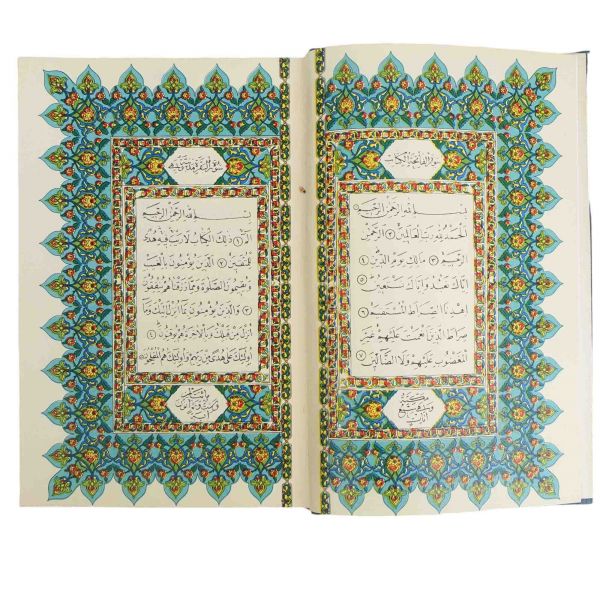 سورة الفاتحة الكتاب
بسم الله الرحمن الرحيم ١
الحمد لله رب العالمين ٢ الرحمن
الرحيم ٣ مالك يوم الدين ٤
اياك نعبد واياك نستعين ٥
اهدنا الصراط المستقيم ٦
صراط الذين انعمت عليهم غير
المغضوب عليهم ولا الضالين ٧
مكية
وهي سبع
آيات
سورة البقرة مدنية وهي
بسم الله الرحمن الرحيم
الم ١ ذلك الكتاب لا ريب فيه هدى
للمتقين ٢ الذين يؤمنون بالغيب
ويقيمون الصلوة ومما رزقناهم ينفقون
٣ والذين يؤمنون بما انزل اليك وما
انزل من قبلك وبالآخرة هم يوقنون ٤
اولئك على هدى من ربهم واولئك هم المفلحون ٥